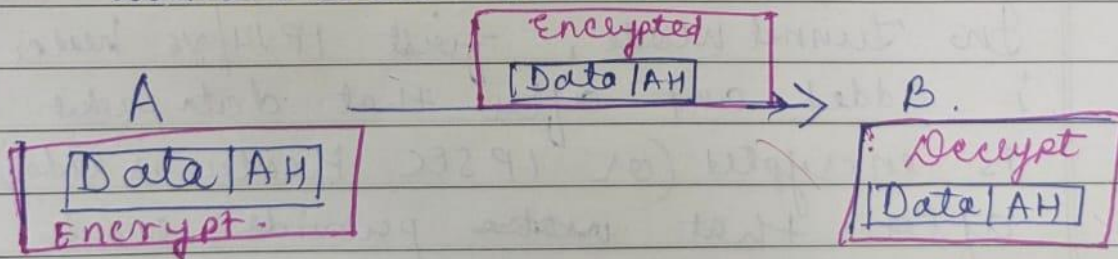 Encrypted
Data | AH
A
B.
Data | AH
Encrypt.
Decrypt
Data | AH